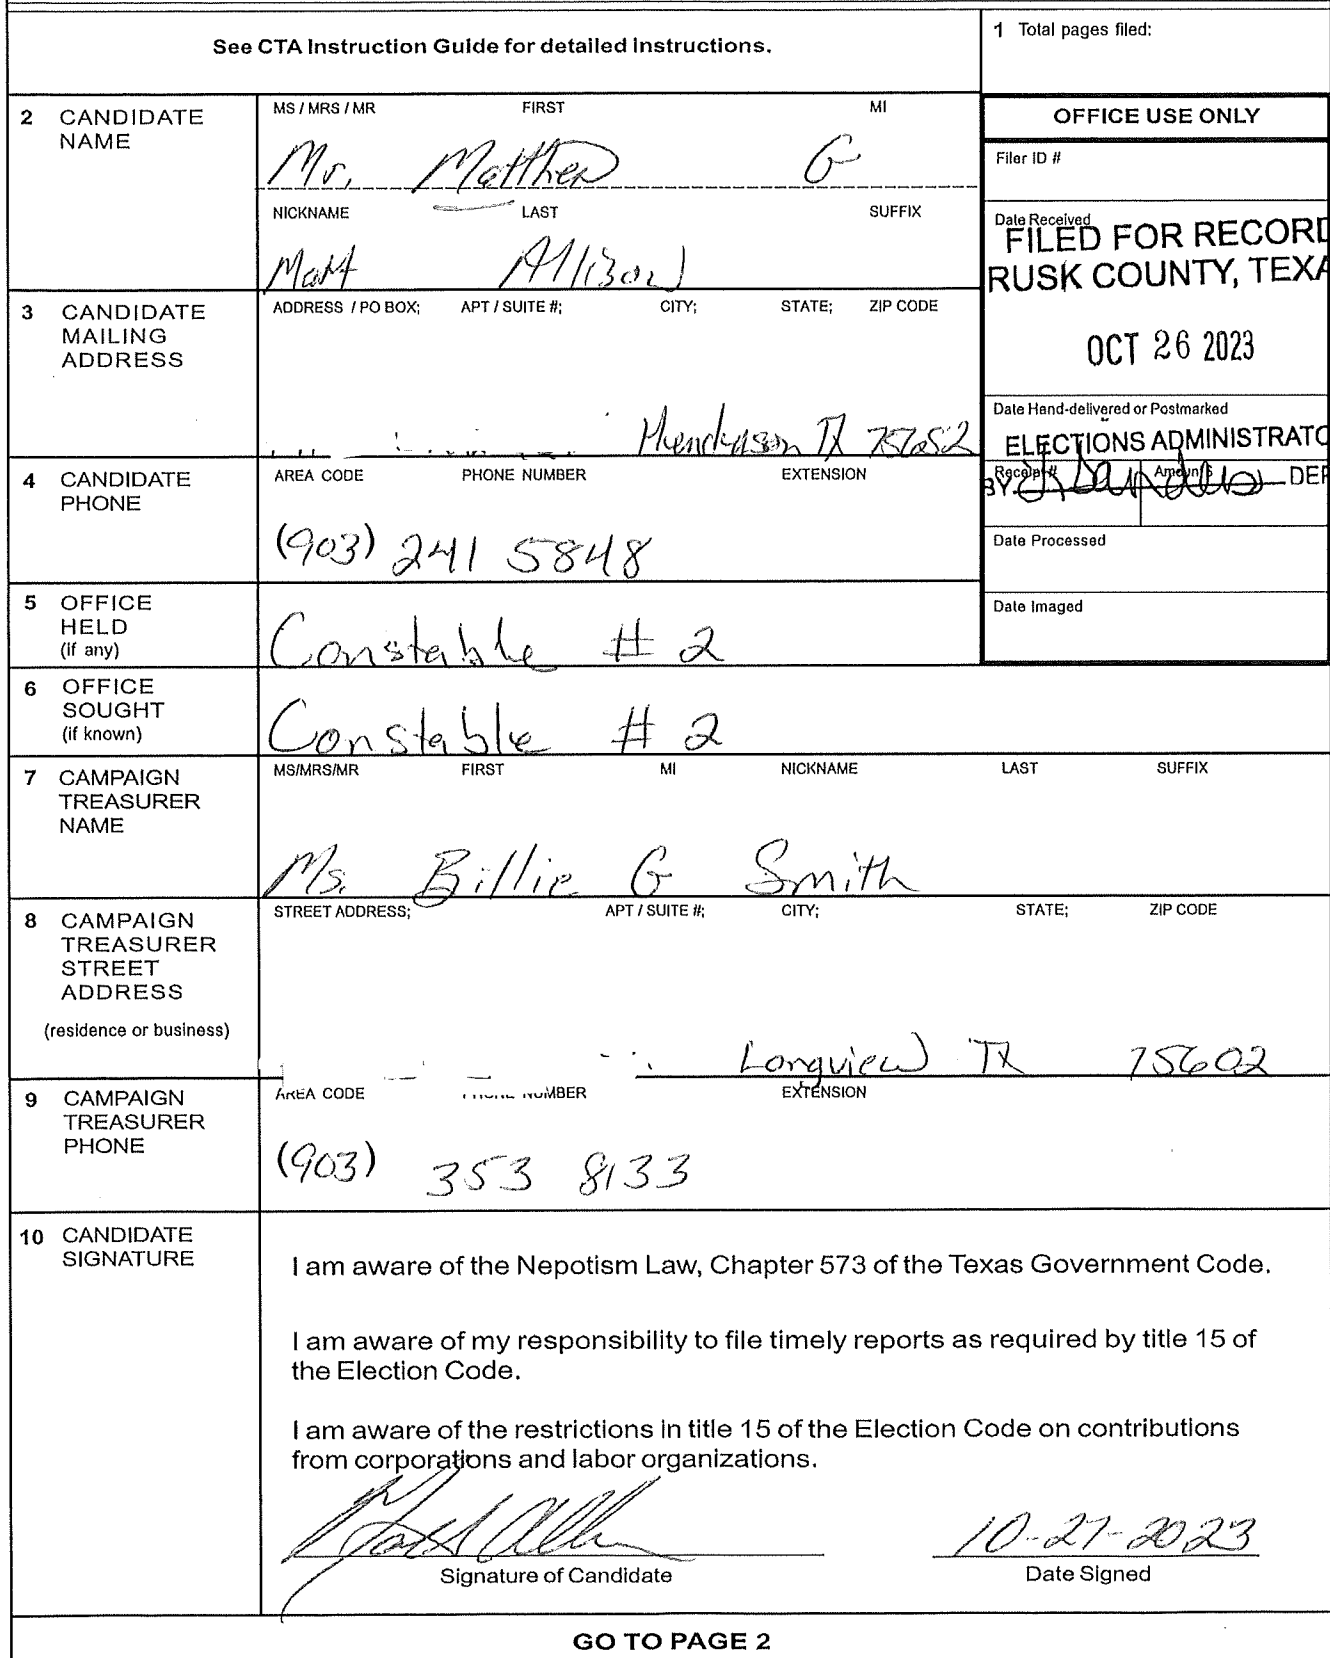 See CTA Instruction Guide for detailed instructions.
1 Total pages filed:
2 CANDIDATE NAME
MS / MRS / MR FIRST MI
Mr. Matthew G
NICKNAME LAST SUFFIX
Matt Allison
OFFICE USE ONLY
Filer ID #
Date Received
FILED FOR RECORD
RUSK COUNTY, TEXA
OCT 26 2023
3 CANDIDATE MAILING ADDRESS
ADDRESS / PO BOX; APT / SUITE #; CITY; STATE; ZIP CODE
Henderson TX 75652
Date Hand-delivered or Postmarked
ELECTIONS ADMINISTRATO
Receipt # Amount $
BY DEP
Date Processed
Date Imaged
4 CANDIDATE PHONE
AREA CODE PHONE NUMBER EXTENSION
(903) 241 5848
5 OFFICE HELD (if any)
Constable # 2
6 OFFICE SOUGHT (if known)
Constable # 2
7 CAMPAIGN TREASURER NAME
MS/MRS/MR FIRST MI NICKNAME LAST SUFFIX
Ms. Billie G Smith
8 CAMPAIGN TREASURER STREET ADDRESS
(residence or business)
STREET ADDRESS; APT / SUITE #; CITY; STATE; ZIP CODE
Longview TX 75602
9 CAMPAIGN TREASURER PHONE
AREA CODE PHONE NUMBER EXTENSION
(903) 353 8133
10 CANDIDATE SIGNATURE
I am aware of the Nepotism Law, Chapter 573 of the Texas Government Code.
I am aware of my responsibility to file timely reports as required by title 15 of
the Election Code.
I am aware of the restrictions in title 15 of the Election Code on contributions
from corporations and labor organizations.
10-27-2023
Signature of Candidate Date Signed
GO TO PAGE 2